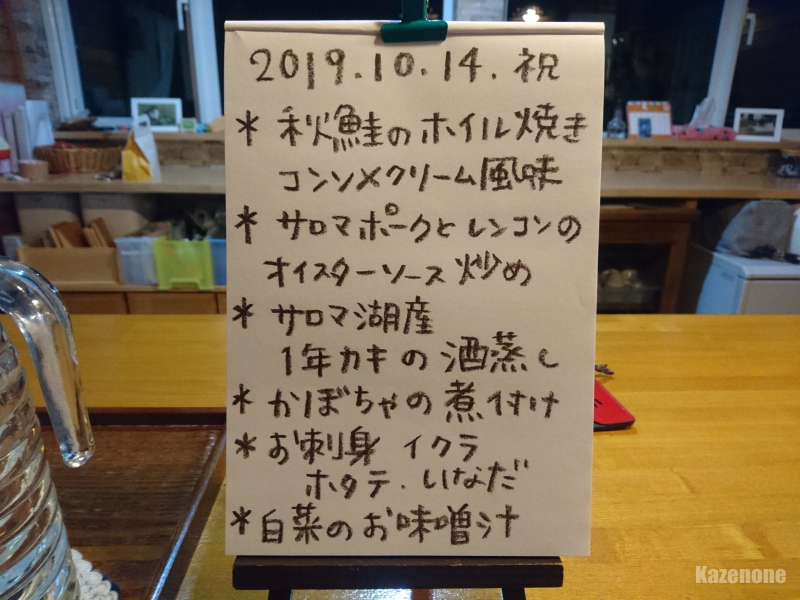 2019.10.14. 祝
* 秋鮭のホイル焼き
コンソメクリーム風味
* サロマポークとレンコンの
オイスターソース炒め
* サロマ湖産
1年カキの酒蒸し
* かぼちゃの煮付け
* お刺身 イクラ
ホタテ.いなだ
* 白菜のお味噌汁
Kazenone